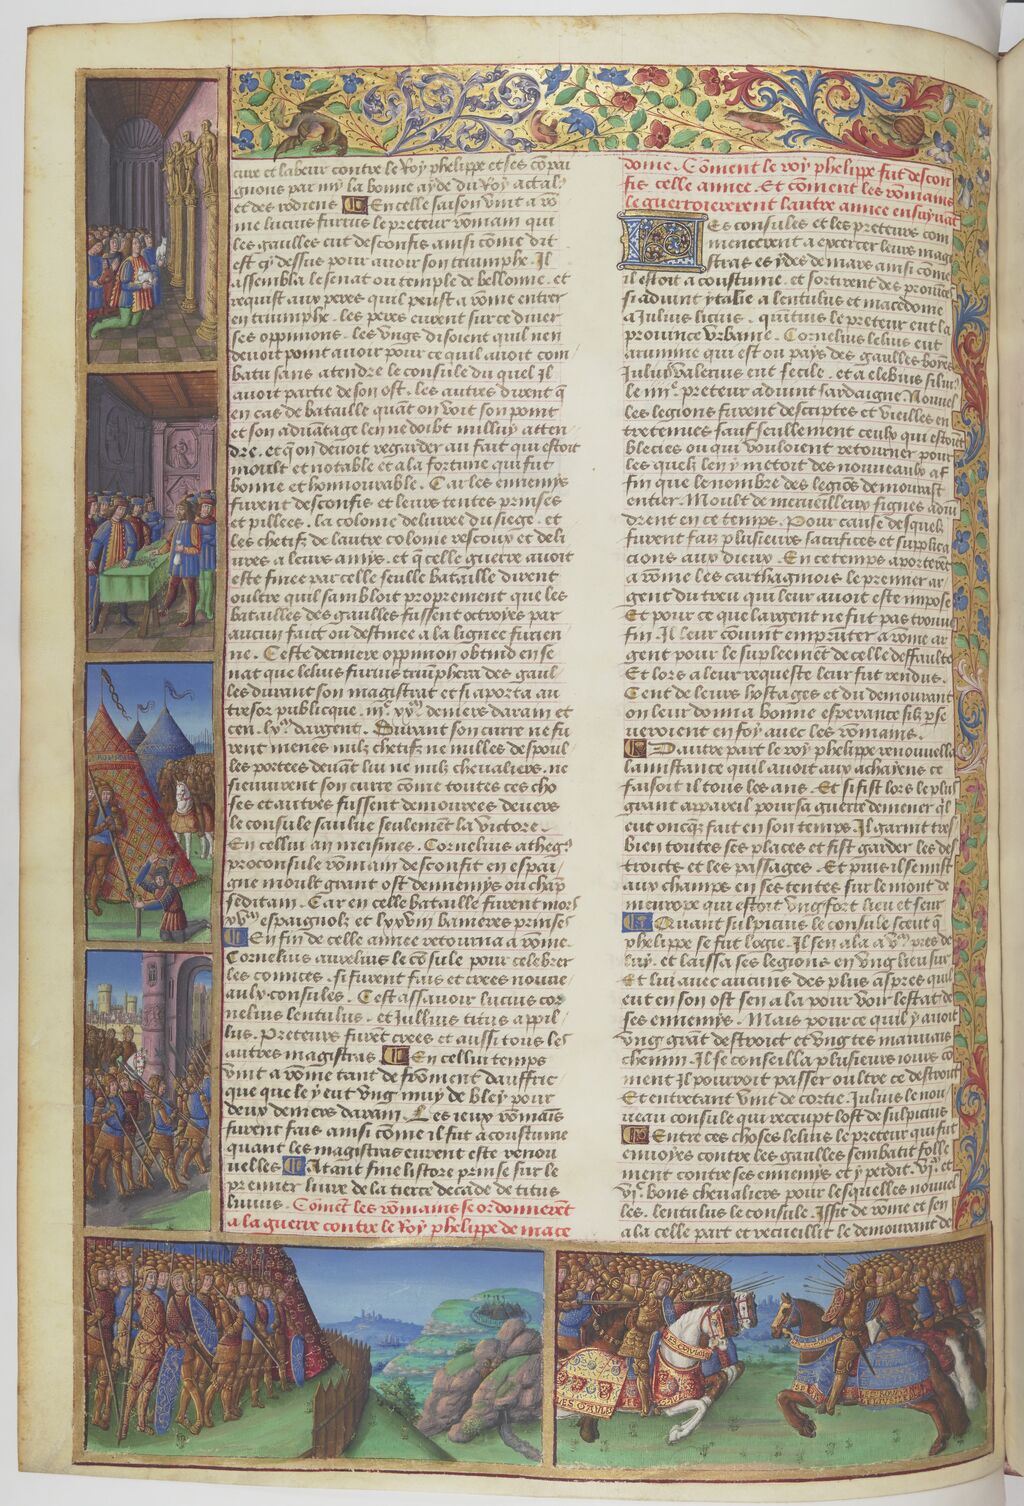 cure et labeur contre le Roy phelippe et ses cōpai
gnons par my la bonne ayde du Roy actal⁹
et des rodiens En celle saison vint a rō
me lucius furius le preteur romain qui
les gaulles eut desconfis ainsi cōme dit
est cy dessus pour auoir son triumphe. Il
assembla le senat ou temple de bellonne. et
requist aux peres quil peust a rōme entrer
en triumphe. les peres eurent sur ce diuer
ses oppinions. les vngs disoient quil nen
deuoit point auoir pour ce quil auoit com
batu sans atendre le consule du quel Il
auoit partie de son ost. les autres dirent q̄
en cas de bataille quāt on voit son point
et son aduātage len ne doibt nulluy atten
dre. et q̄ on deuoit regarder au fait qui estoit
moult et notable et a la fortune qui fut
bonne et honnourable. Car les ennemys
furent desconfis et leurs tentes prinses
et pillees. la colonie deliuree du siege. et
les chetifz de lautre colonie rescoux et deli
ures a leurs amys. et q̄ celle guerre auoit
este finee par celle seulle bataille dirent
oultre quil sambloit proprement que les
batailles des gaulles fussent octroyes par
aucun faict ou destinee a la lignee furien
ne. Ceste derniere oppinion obtind en se
nat que lelius furius triumphera des gaul
les durant son magistrat et si aporta au
tresor publicque. iijᶜ. xxᵐ deniers darain et
cen. lxᵐ dargent. Durant son curre ne fu
rent menes nulz chetifz ne nulles despoul
les portees deuāt luy ne nulz cheualiers. ne
sieuuirent son curre cōme toutes ces cho
ses et autres fussent demourees deuers
le consule saulue seulemēt la victore.
En cellui an meismes. Cornelius atheg⁹
proconsule rōmain desconfit en espai
gne moult grant ost dennemys ou chāp
seditain. Car en celle bataille furent mors
xvᵐ espaignolz et lxxviii banieres prinses
En fin de celle annee retourna a rōme.
Cornelius aurelius le cōsule pour celebrer
les comices. si furent fais et crees nouue
aulx consules. Cest assauoir lucius cor
nelius lentulus. et Jullius titus appil
lus. Preteurs furēt crees et aussi tous les
autres magistras En cellui temps
vint a rōme tant de fromēnt dauffric
que que le y eut vng muy de bley pour
deux deniers darain. Les ieux rōmains
furent fais ainsi cōme il fut a coustume
quant les magistras eurent este renou
uelles Atant fine listore prinse sur le
premier liure de la tierce decade de titus
liuius. Cōmēt les rōmains se ordonnerēt
a la guerre contre le Roy phelippe de mace
donie. Cōment le roy phelippe fut descon
fis celle annee. Et cōment les rōmains
le guerroierevent lautre annee ensuyuāt
Les consules et les preteurs com
mencerent a exercer leurs magi
stras es ydes de mars ainsi cōme
il estoit a coustume. et sortirent des prouices
si aduint ytalie a lentulus et macedome
a Julius licius. quītius le preteur eut la
prouince vrbaine. Cornelius lelius eut
arumine qui est ou pays des gaulles bores
Julius valerius eut secile. et a elebius silui⁹
le iiijᵉ preteur aduint sardaigne. Nouuel
les legions furent descriptes et vieilles en
tretenues sauf seullement ceulx qui estoiēt
blecies ou qui vouloient retourner pour
les quelz len y mettoit des nouueaulx af
fin que le nombre des legiōs demourast
entier. Moult de merueilleux signes adui
drent en ce temps. Pour cause desquelz
furent faiz plusieurs sacrifices et supplica
cions aux dieux. En ce temps aporterēt
a rōme les carthagmois le premier ar
gent du treu qui leur auoit este impose
Et pour ce que largent ne fut pas trouue
fin. Il leur cōuint emprūter a rōme ar
gent pour le supleemēt de celle deffaulte
Et lors a leur requeste leur fut rendus.
Cent de leurs hostages et du demourant
on leur donna bonne esperance silz perse
ueroient en foy auec les rōmains.
Dautre part le roy phelippe renouuella
lainstance quil auoit aux achayens ce
faisoit il tous les ans. Et si fist lors le plus
grant appareil pour sa guerre demener q̄l
eut oncq̄z fait en son temps. Il garnit tres
bien toutes ses places et fist garder les de
stroicts et les passages. Et puis il se mist
aux champs en ses tentes sur le mont de
meurope qui estoit vng fort lieu et seur
Quant sulpicius le consule sceut q̄
phelippe se fut logie. Il sen ala a vᵐ pres de
luy. et laissa ses legions en vng lieu sur
Et lui auec aucuns des plus aspres quil
eut en son ost sen ala pour voir lestat de
ses ennemys. Mais pour ce quil y auoit
vng grāt destroict et vng tres mauuais
chemin. Il se conseilla plusieurs iours cō
ment Il pourroit passer oultre ce destroit
Et entretant vint de cortie. Julius le nou
ueau consule qui receupt lost de sulpicius
Entre ces choses lelius le preteur qui fut
enuoyes contre les gaulles sembatit folle
ment contre ses ennemys et y perdit. vjᵐ. et
vjᶜ. bons cheualiers pour lesquelles nouuel
les. lentulus le consule. Issit de rome et sen
ala celle part et recueillit le demourant de